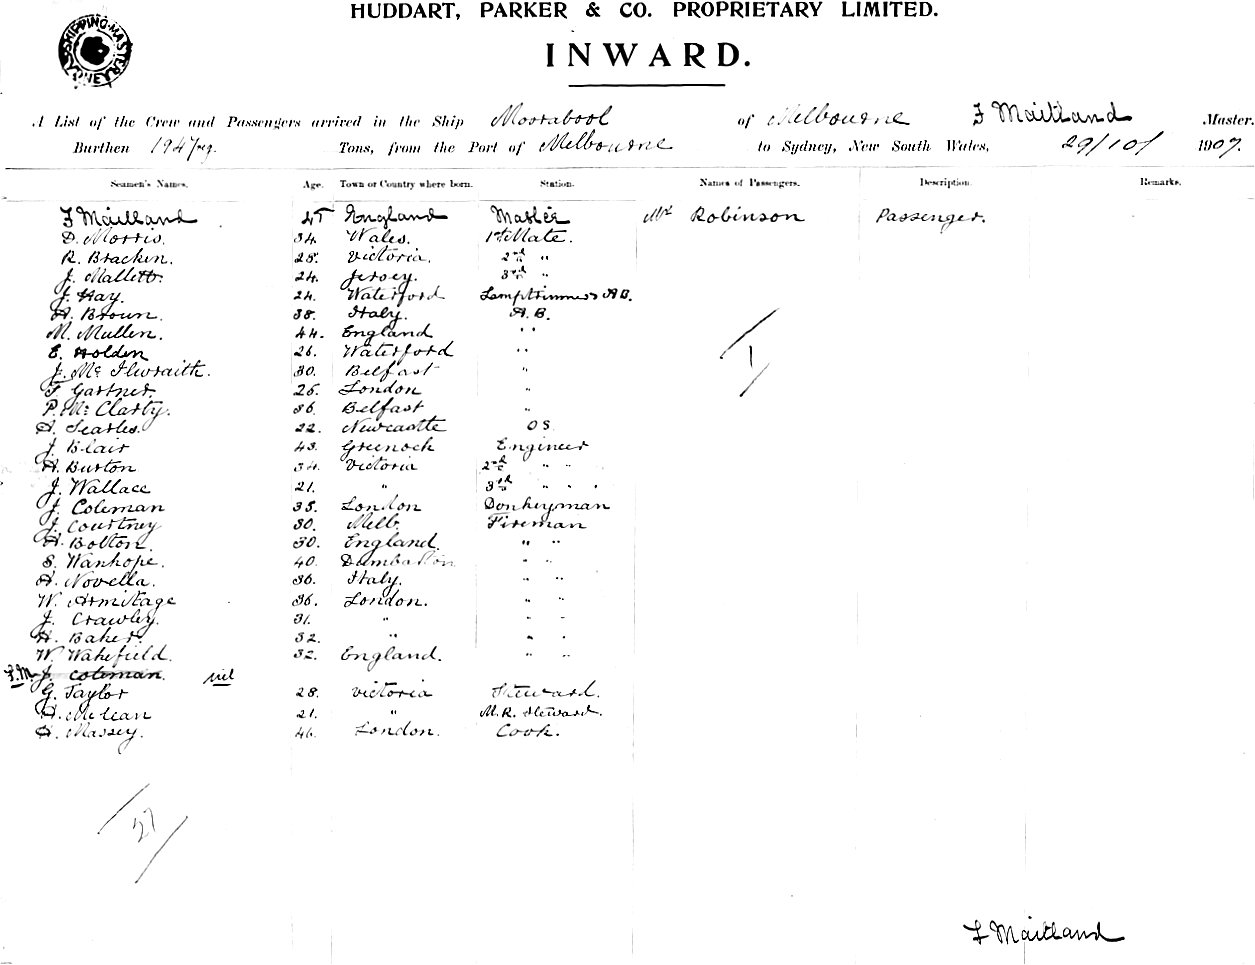 HUDDART, PARKER & CO. PROPRIETARY LIMITED.
SHIPPING MASTER
INWARD.
A List of the Crew and Passengers arrived in the Ship Moorabool of Melbourne F Maitland Master.
Burthen 1947 reg. Tons, from the Port of Melbourne to Sydney, New South Wales, 29/10/ 1907.
Seamen's Names. Age. Town or Country where born. Station. Names of Passengers. Description. Remarks.
F Maitland 45 England Master Mr Robinson Passenger.
D. Morris. 34. Wales. 1st Mate.
R. Bracken. 25. Victoria. 2nd "
J. Mallett. 24. Jersey. 3rd "
J. Hay. 24. Waterford Lamptrimmer & A.B.
A. Brown. 38. Italy. A.B.
M. Mullen. 44. England " "
E. Holden 26. Waterford " "
J. Mc Ilwraith. 30. Belfast "
F. Gartner. 26. London "
P. Mc Clarty. 36 Belfast "
A. Searles. 22. Newcastle OS
J. Blair 43. Greenock Engineer
H. Burton 34. Victoria 2nd " "
J. Wallace 21. " 3rd " "
J. Coleman 38. London Donkeyman
J. Courtney 30. Melb. Fireman
H. Bolton. 30. England. " "
S. Wanhope. 40. Dumbarton " "
A. Novella. 36. Italy. " "
W. Armitage 36. London. " "
J. Crawley. 31. " " "
H. Baker. 32. " " "
W. Wakefield. 32. England. " "
F.M. J. Coleman. nil
G. Taylor 28. Victoria Steward.
A. McLean 21. " M.R. Steward.
H. Massey. 46. London. Cook.
1
27
F Maitland